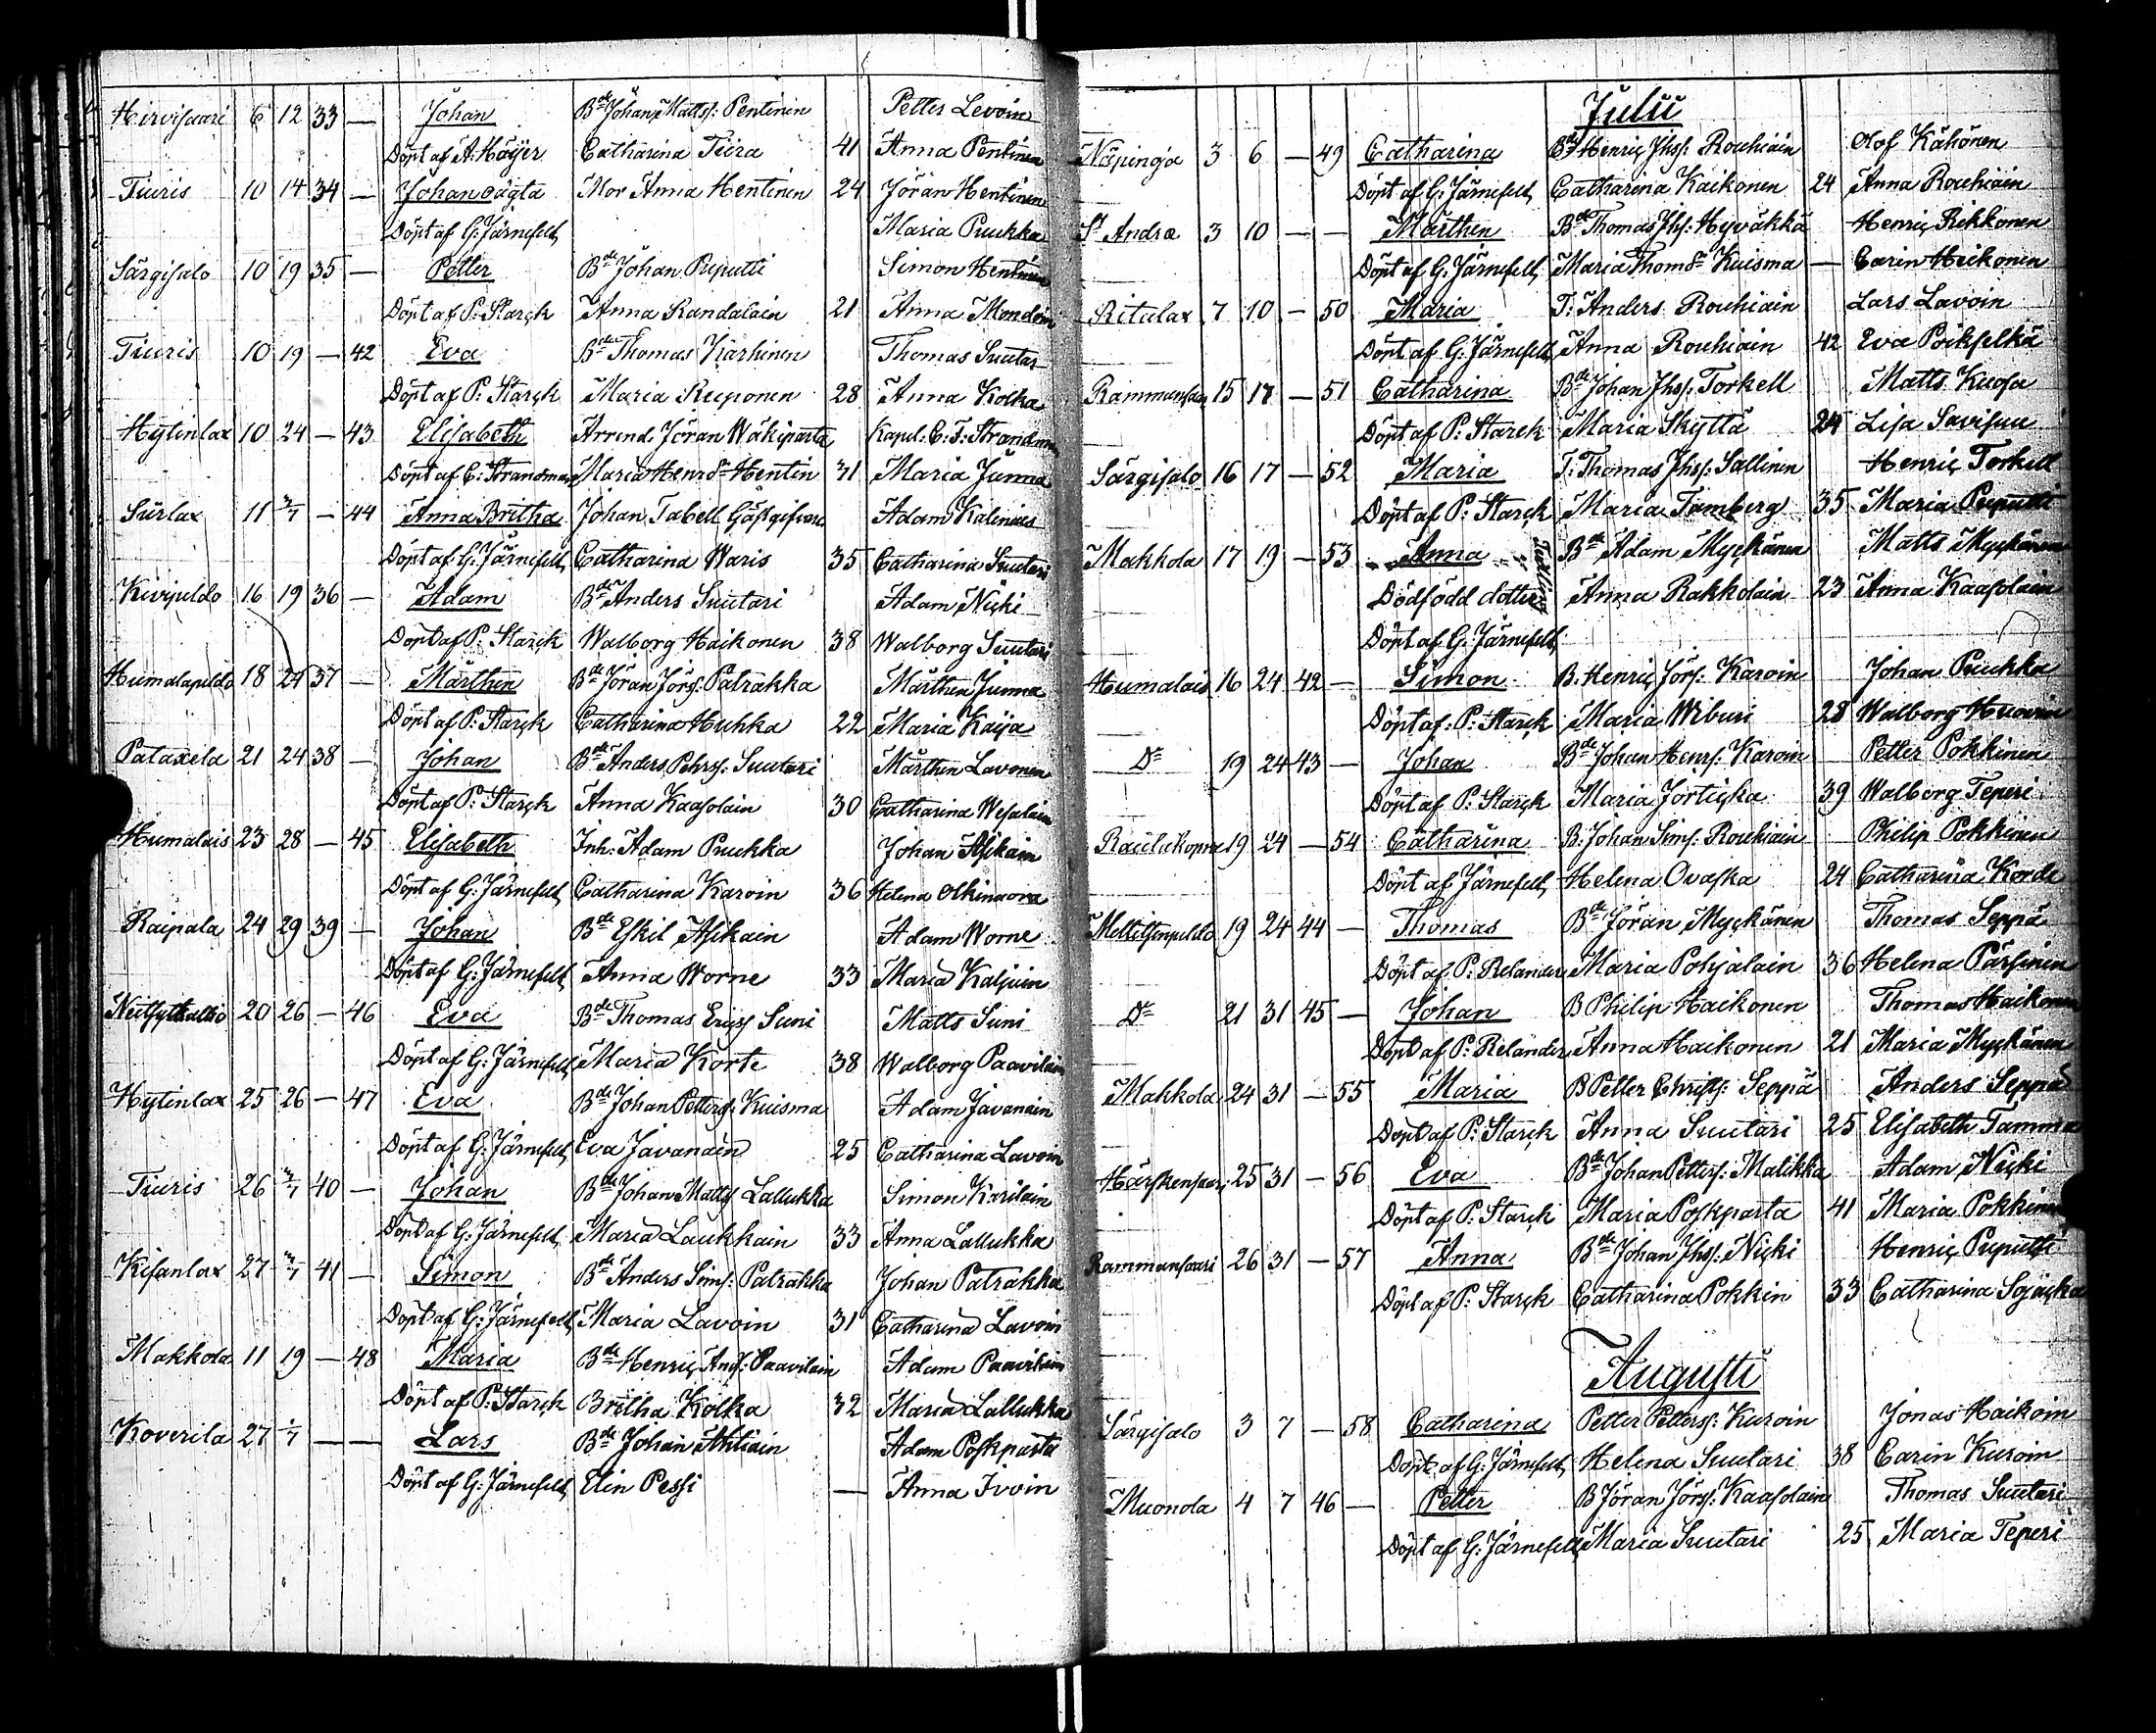 Hirvisaari 6 12 33 — Johan Bde Johan Mattss: Pentinen Petter Levoin
Döpt af A: Höijer Catharina Tiira 41 Anna Pentinen
Tiuris 10 14 34 — Johan oägta Mor Anna Hentinen 24 Jöran Hentinen
Döpt af G: Järnefelt, Maria Puukka
Särgisalo 10 19 35 — Petter Bde Johan Puputti Simon Hentinen
Döpt af P: Starck Anna Randalain 21 Anna
Tiuris 10 19 — 42 Eva Bde Thomas Karhinen Thomas Suutar
Döpt af P: Starck Maria Reeponen 28 Anna Kolka
Hytinlax 10 24 — 43 Elisabeth Arrend. Jöran Wäkiparta Kapel: C: F: Strandman
Döpt af C: Strandman Maria Henrsdr Hentin 31 Maria Junna
Surlax 11 2/7 — 44 Anna Britha Johan Tabell Gästgifvare Adam Kalinius
Döpt af G: Järnefelt, Catharina Waris 35 Catharina Suutari
Kivipeldo 16 19 36 — Adam Bde Anders Suutari Adam Nicki
Döpt af P: Starck Walborg Haikonen 38 Walborg Suutari
Humalapeldo 18 24 37 — Mårthen Bde Jöran Jörss: Patrakka Mårthen Junna
Döpt af P: Starck Catharina Huhka 22 Maria Kaija
Pataxela 21 24 38 — Johan Bde Anders Pehrss: Suutari Mårthen Lavonen
Döpt af P: Starck Anna Kaasolain 30 Catharina Wesalain
Humalais 23 28 — 45 Elisabeth Inh: Adam Puukka Johan Asikain
Döpt af G: Järnefelt, Catharina Karoin 36 Helena Olkinuora
Raipala 24 29 39 — Johan Bde Eskil Asikain Adam Worne
Döpt af G: Järnefelt, Anna Worne 33 Maria Kaljuin
20 26 — 46 Eva Bde Thomas Ericss Suni Matts Suni
Döpt af G: Järnefelt, Maria Korte 38 Walborg Paavilain
Hytinlax 25 26 — 47 Eva Bde Johan Petterss: Kuisma Adam Javanain
Döpt af G: Järnefelt, Eva Javanain 25 Catharina Lavoin
Tiuris 26 2/7 40 — Johan Bde Johan Mattss Lallukka Simon Karilain
Döpt af G: Järnefelt, Maria Laukkain 33 Anna Lallukka
Kisanlax 27 2/7 41 — Simon Bde Anders Sims: Patrakka Johan Patrakka
Döpt af G: Järnefelt, Maria Lavoin 31 Catharina Lavoin
Makkola 11 19 — 48 Maria Bde Henric And: Paavilain Adam Paavilain
Döpt af P: Starck Britha Kolka 32 Maria Lallukka
Koverila 27 1/7 — — Lars Bde Johan Ahtiain Adam Poskparta
Döpt af G: Järnefelt, Elin Pessi — Anna Ivoin
Julii
Näpinoja 3 6 — 49 Catharina Bde Henric Jhss: Rouhiain Olof Kähönen
Döpt af G: Järnefelt, Catharina Kaikonen 24 Anna Rouhiain
St Andræ 3 10 — — Mårthen Bde Thomas Jhs: Hyväkkä Henric Rikkonen
Döpt af G: Järnefelt, Maria Thomsdr Kuisma — Carin Haikonen
Ritulax 7 10 — 50 Maria T: Anders Rouhiain Lars Lavoin
Döpt af G: Järnefelt, Anna Rouhiain 42 Eva Poikselkä
15 17 — 51 Catharina Bde Johan Jhss: Torkell Matts Kuosa
Döpt af P: Starck Maria Skyttä 24 Lisa Savisuu
Särgisalo 16 17 — 52 Maria T: Thomas Jhss: Sallinen Henric Torkell
Döpt af P: Starck Maria Tamberg 35 Maria Puputti
Makkola 17 19 — 53 Anna Tvilling Bde Adam Myckänen Matts Myckänen
Dödfödd dotter Anna Rakkolain 23 Anna Kaasolain
Döpt af G: Järnefelt,
Humalais 16 24 42 — Simon B. Henric Jörs: Karoin Johan Puukka
Döpt af: P: Starck Maria Wiburi 28 Walborg Huovin
Do 19 24 43 — Johan Bde Johan Henrs: Karoin Petter Pokkinen
Döpt af P: Starck Maria Jorticka 39 Walborg Teperi
19 24 — 54 Catharina B. Johan Sims: Rouhiain Philip Pokkinen
Döpt af Järnefelt, Helena Ovaska 24 Catharina Korde
19 24 44 — Thomas Bde Jöran Myckänen Thomas Seppä
Döpt af P: Relander Maria Pohjalain 36 Helena Pärsinen
Do 21 31 45 — Johan B Philip Haikonen Thomas Haikonen
Döpt af P: Relander Anna Haikonen 21 Maria Myckänen
Makkola 24 31 — 55 Maria B Petter Christs: Seppä Anders Seppä
Döpt af P: Starck Anna Suutari 25 Elisabeth Tamma
25 31 — 56 Eva Bde Johan Petters: Matikka Adam Nicki
Döpt af P: Starck Maria Poskparta 41 Maria Pokkinen
Rammansaari 26 31 — 57 Anna Bde Johan Jhss: Nicki Henric Puputti
Döpt af P: Starck Catharina Pokkin 33 Catharina
Augusti
Särgisalo 3 7 — 58 Catharina Petter Petterss: Kuroin Jonas Haikoin
Döpt af G: Järnefelt, Helena Suutari 38 Carin Kuroin
Muonola 4 7 46 — Petter B Jöran Jörss: Kaasolain Thomas Suutari
Döpt af G: Järnefelt, Maria Suutari 25 Maria Teperi